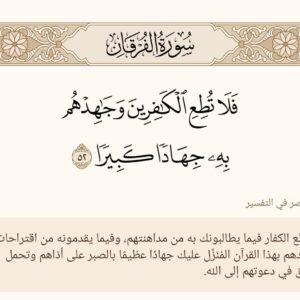 سُورَةُ الفُرْقَانِ
فَلَا تُطِعِ ٱلْكَٰفِرِينَ وَجَٰهِدْهُم
بِهِۦ جِهَادًا كَبِيرًا ٥٢
في التفسير
الكفار فيما يطالبونك به من مداهنتهم، وفيما يقدمونه من اقتراحات
بهذا القرآن المُنَزَّل عليك جهادًا عظيمًا بالصبر على أذاهم وتحمل
في دعوتهم إلى الله.